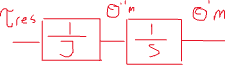 τres 1/J θ̈m 1/S θ̇m